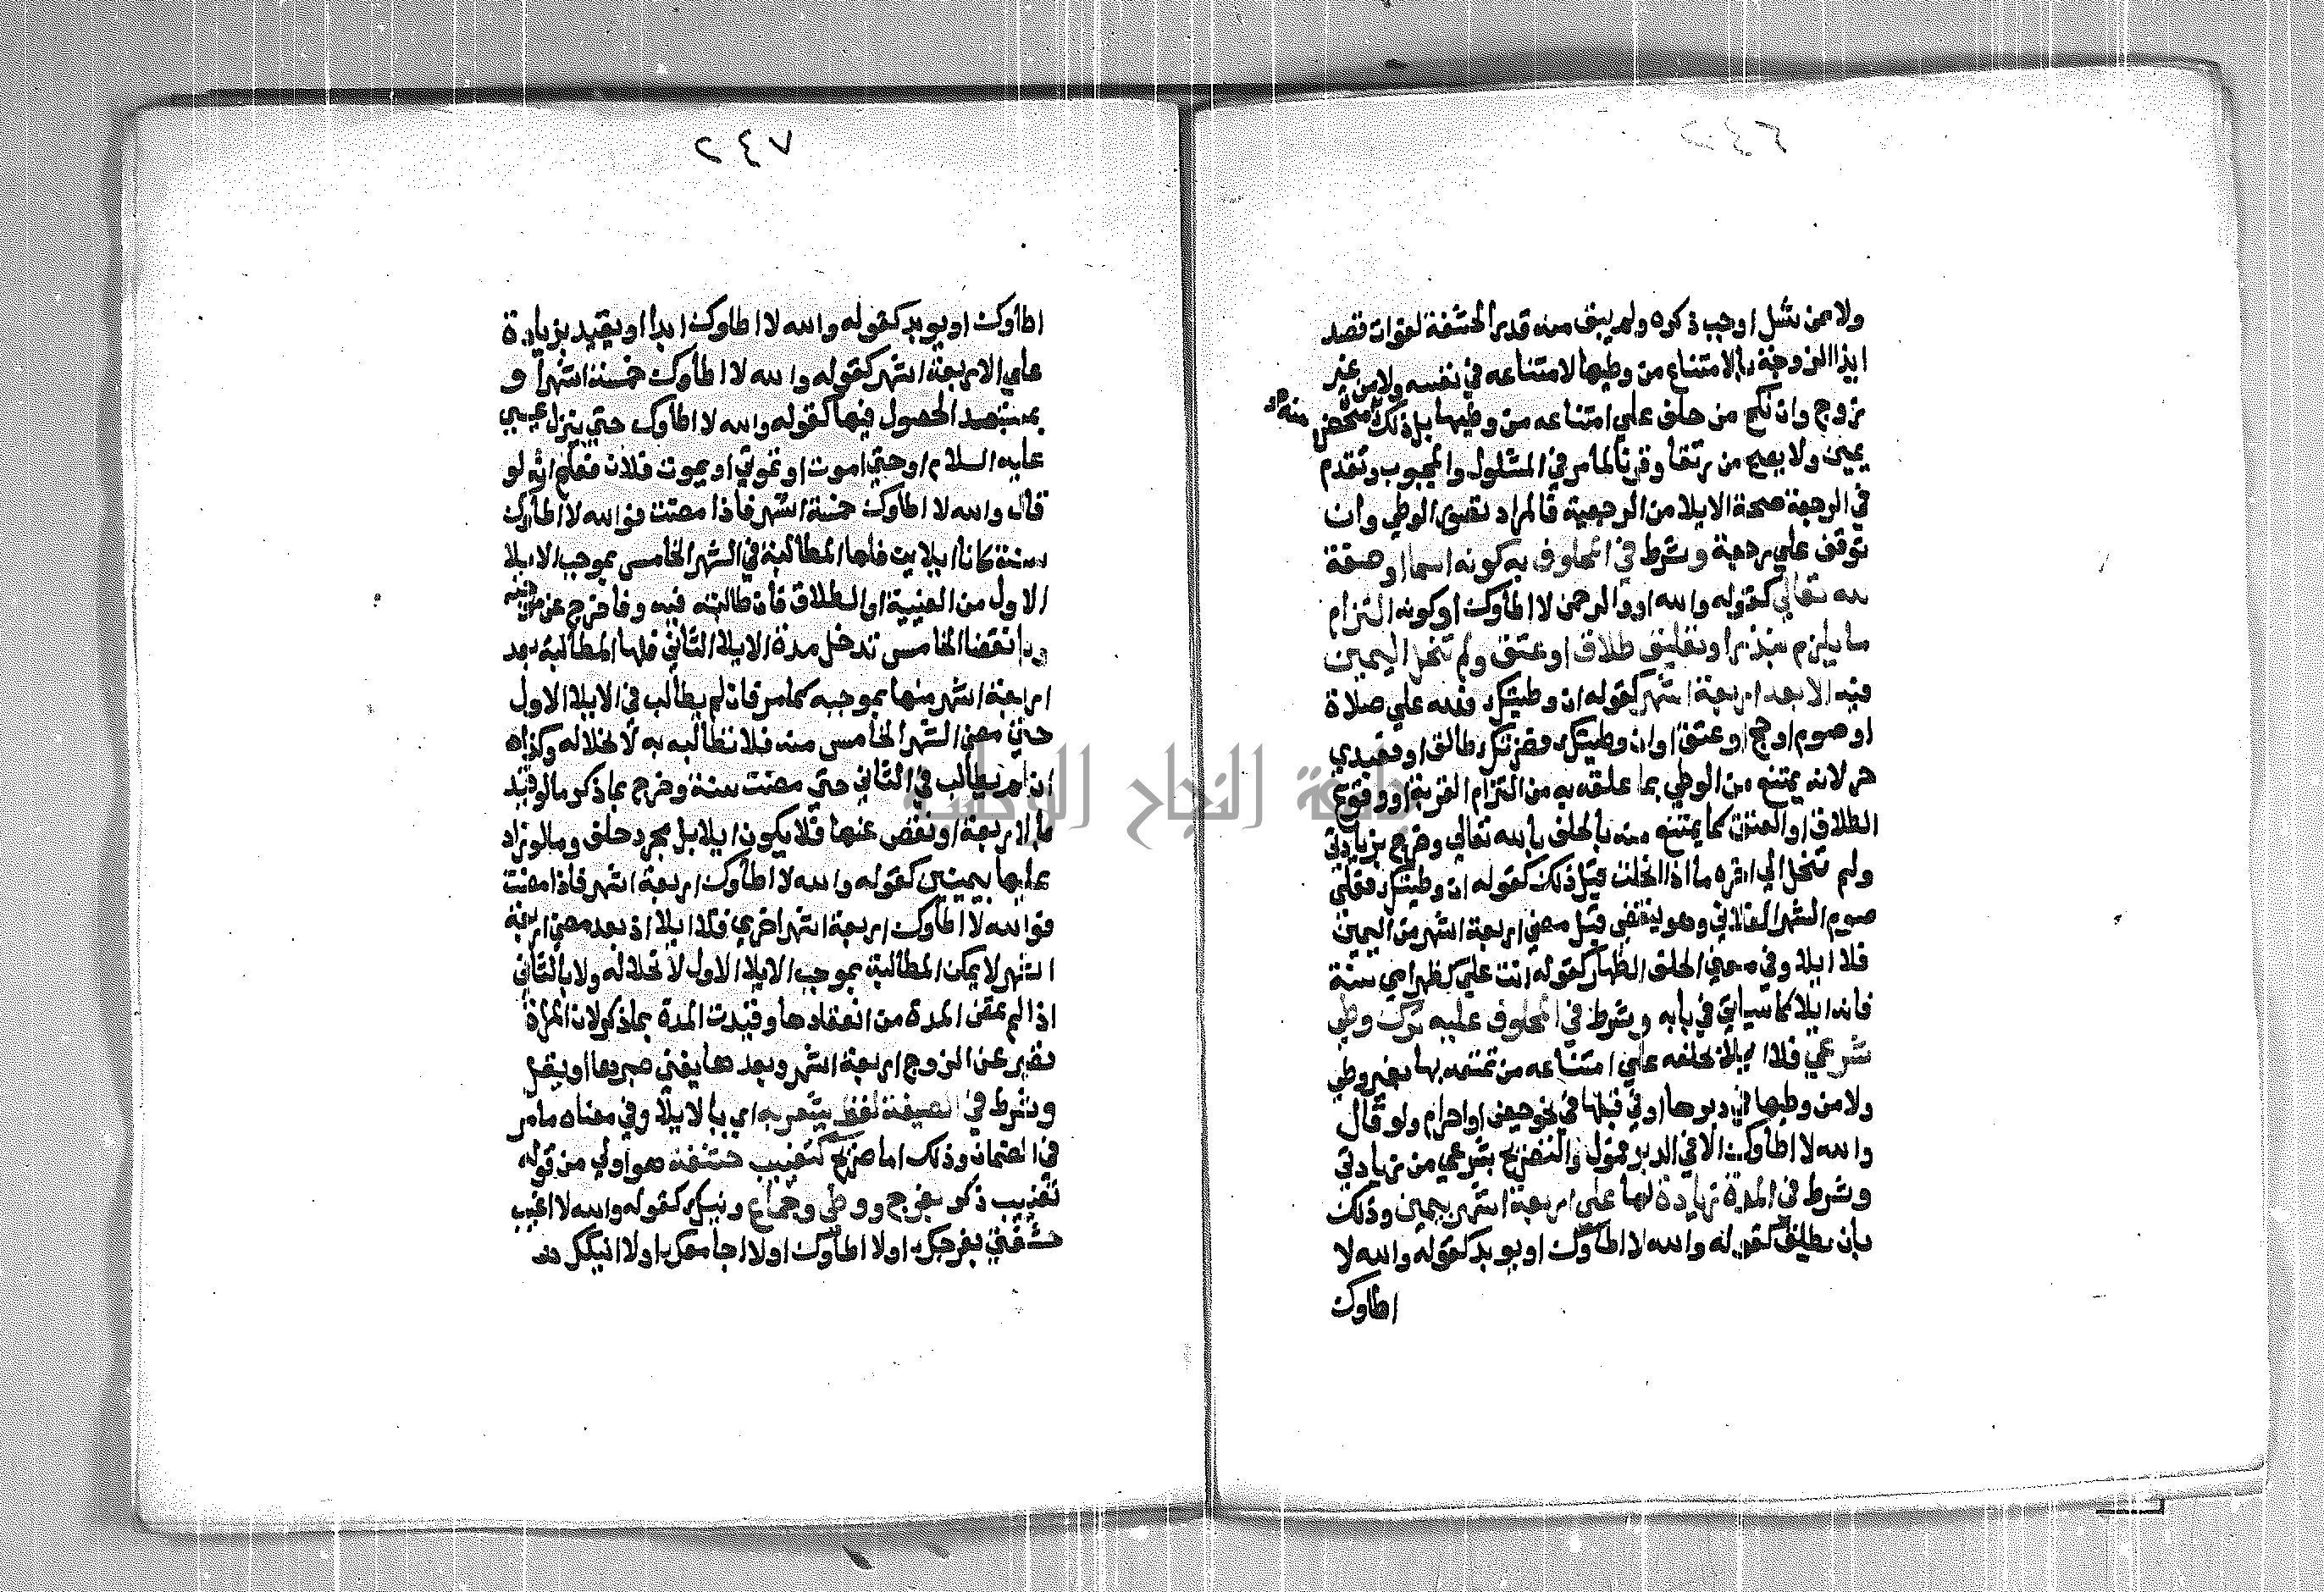 ولا ممن شل او جب ذكره ولم يبق منه قدر الحشفة لفوات قصد
ايذا الزوجة بالامتناع من وطيها لامتناعه في نفسه ولا من غير
زوج وان نكح من حلف علي امتناعه من وطيها بل ذلك محض
يمين ولا يصح من رتقا وقرنا لما مر في المشلول والمجبوب وتقدم
في الرجعة صحة الايلا من الرجعية فالمراد تصور الوطي وان
توقف علي رجعة وشرط في المحلوف به كونه اسما او صفة
لله تعالي كقوله والله او والرحمن لا اطاوك او كونه التزام
ما يلزم بنذر او تعليق طلاق او عتق ولم تنحل اليمين
فيه الا بعد اربعة اشهر كقوله ان وطيتك فلله علي صلاة
او صوم او حج او عتق او ان وطيتك فضرتك طالق او فعبدي
حر لانه يمتنع من الوطي بما علقه به من التزام القربة او وقوع
الطلاق او العتق كما يمتنع منه بالحلف بالله تعالي وخرج بزيادتي
ولم تنحل الي اخره ما اذا انحلت قبل ذلك كقوله ان وطيتك فعلي
صوم الشهر الفلاني وهو ينقضي قبل مضي اربعة اشهر من اليمين
فلا ايلا وفي معني الحلف الظهار كقوله انت علي كظهر امي سنة
فانه ايلا كما سياتي في بابه وشرط في المحلوف عليه ترك وطي
شرعي فلا ايلا بحلفه علي امتناعه من تمتعه بها بغير وطي
ولا من وطيها في دبرها او في قبلها في نحو حيض او احرام ولو قال
والله لا اطاوك الا في الدبر فمول والتصريح بشرعي من زيادتي
وشرط في المدة زيادة لها علي اربعة اشهر بيمين وذلك
بان يطلق كقوله والله لا اطاوك او يوبد كقوله والله لا
اطاوك
٢٤٧
اطاوك او يوبد كقوله والله لا اطاوك ابدا او يقيد بزيادة
علي الاربعة اشهر كقوله والله لا اطاوك خمسة اشهر او
بمستبعد الحصول فيها كقوله والله لا اطاوك حتي ينزل عيسي
عليه السلام او حتي اموت او تموتي او يموت فلان فعلم انه لو
قال والله لا اطاوك خمسة اشهر فاذا مضت فوالله لا اطاوك
سنة كانا ايلايين فلها المطالبة في الشهر الخامس بموجب الايلا
الاول من الفيية او الطلاق فان طالبته فيه وفا خرج عن موجبه
وبانقضا الخامس تدخل مدة الايلا الثاني فلها المطالبة بعد
اربعة اشهر منها بموجبه كما مر فان لم يطالب في الايلا الاول
حتي مضي الشهر الخامس منه فلا تطالبه به لانحلاله وكذا
ان لم يطالب في الثاني حتي مضت سنة وخرج بما ذكر ما لو قيد
بالاربعة او نقص عنها فلا يكون ايلا بل مجرد حلف وما لو زاد
عليها بيمينين كقوله والله لا اطاوك اربعة اشهر فاذا مضت
فوالله لا اطاوك اربعة اشهر اخري فلا ايلا اذ بعد مضي اربعة
اشهر لا يمكن المطالبة بموجب الايلا الاول لانحلاله ولا بالثاني
اذا لم تمض المدة من انعقادها وقيدت المدة بما ذكر لان المراة
تصبر عن الزوج اربعة اشهر وبعدها يفني صبرها او يقل
وشرط في الصيغة لفظ يشعر به اي بالايلا وفي معناه ما مر
في الضمان وذلك اما صريح كتغييب حشفة هو اولي من قوله
تغييب ذكر بفرج ووطي وجماع ونيك كقوله والله لا اغيب
حشفتي بفرجك او لا اطاوك او لا اجامعك او لا انيكك